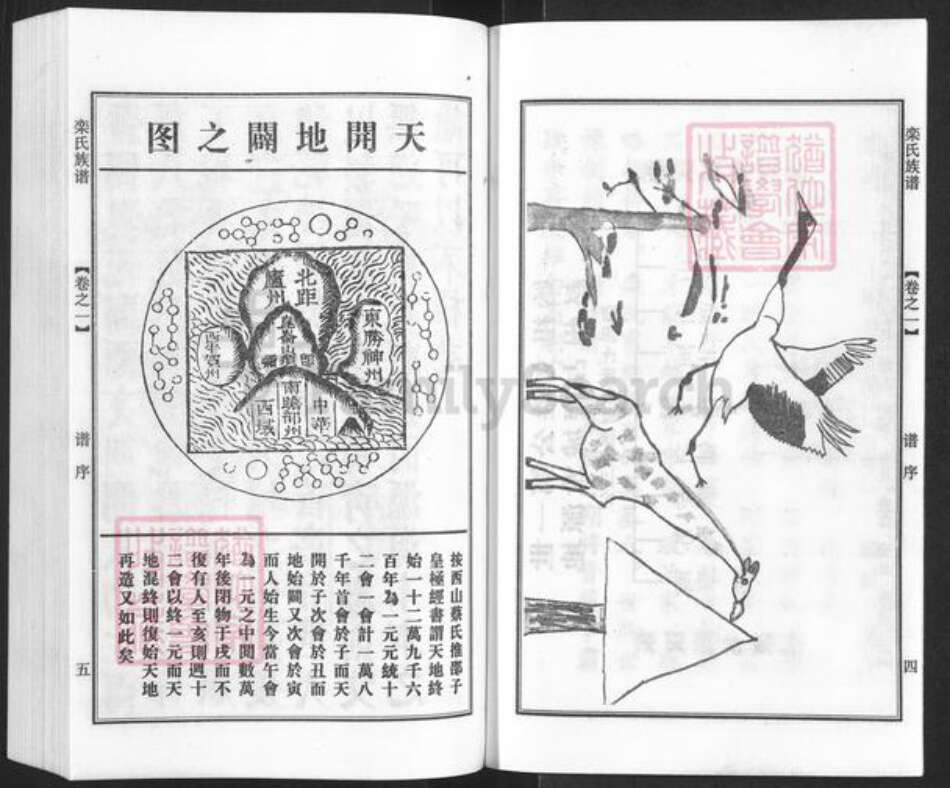 栾氏族谱
【卷之一】
谱序
四
天開地闢之图
北距
廬州
東勝神
州
崑崙山
南贍部州
中華
西域
按西山蔡氏推邵子
皇極經書謂天地終
始一十二萬九千六
百年為一元元統十
二會一會計一萬八
千年首會於子而天
開於子次會於丑而
地始闢又次會於寅
而人始生今當午會
為一元之中閱數萬
年後閉物于戌而不
復有人至亥則週十
二會以終一元而天
地混終則復始天地
再造又如此矣
栾氏族谱
【卷之一】
谱序
五
FamilySearch